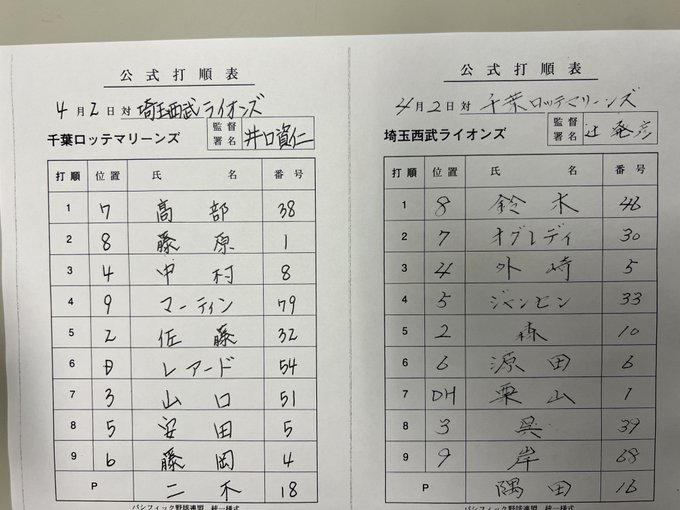 公式打順表
4月2日対 埼玉西武ライオンズ
千葉ロッテマリーンズ 監督署名 井口資仁
打順 位置 氏名 番号
1 7 髙部 38
2 8 藤原 1
3 4 中村 8
4 9 マーティン 79
5 2 佐藤 32
6 D レアード 54
7 3 山口 51
8 5 安田 5
9 6 藤岡 4
P 二木 18
パシフィック野球連盟 統一様式
公式打順表
4月2日対 千葉ロッテマリーンズ
埼玉西武ライオンズ 監督署名 辻発彦
打順 位置 氏名 番号
1 8 鈴木 46
2 7 オグレディ 30
3 4 外崎 5
4 5 ジャンセン 33
5 2 森 10
6 6 源田 6
7 DH 栗山 1
8 3 呉 39
9 9 岸 68
P 隅田 16
パシフィック野球連盟 統一様式